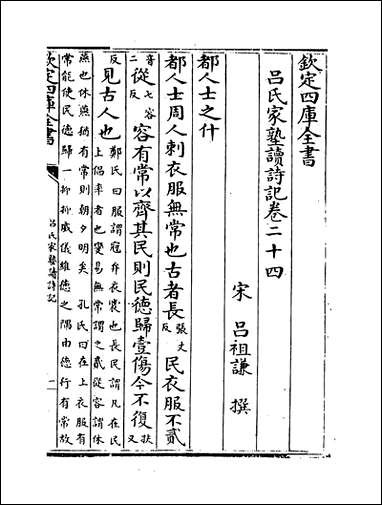 欽定四庫全書
呂氏家塾讀詩記卷二十四
宋 呂祖謙 撰
都人士之什
都人士周人刺衣服無常也古者長張丈反民衣服不貳
音二從七容反容有常以齊其民則民德歸壹傷今不復扶又
反見古人也鄭氏曰服謂冠弁衣裳也長民謂凡在民
上倡率者也變易無常謂之貳從容謂休
燕也休燕猶有常則朝夕明矣 孔氏曰在上衣服有
常能使民德歸一抑抑威儀維德之隅由德行有常故
欽定四庫全書
呂氏家塾讀詩記
一